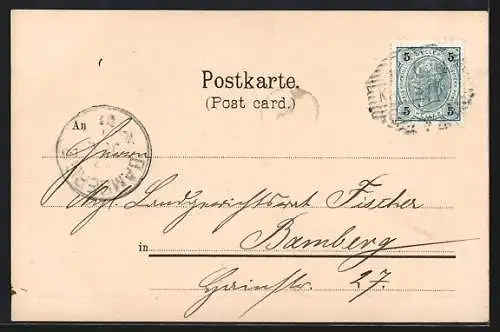 Postkarte.
(Post card.)
An
5 5
5 5
BAMBERG
Herrn
Kgl. Landgerichtsrat Fischer
in Bamberg
Hainstr. 27.